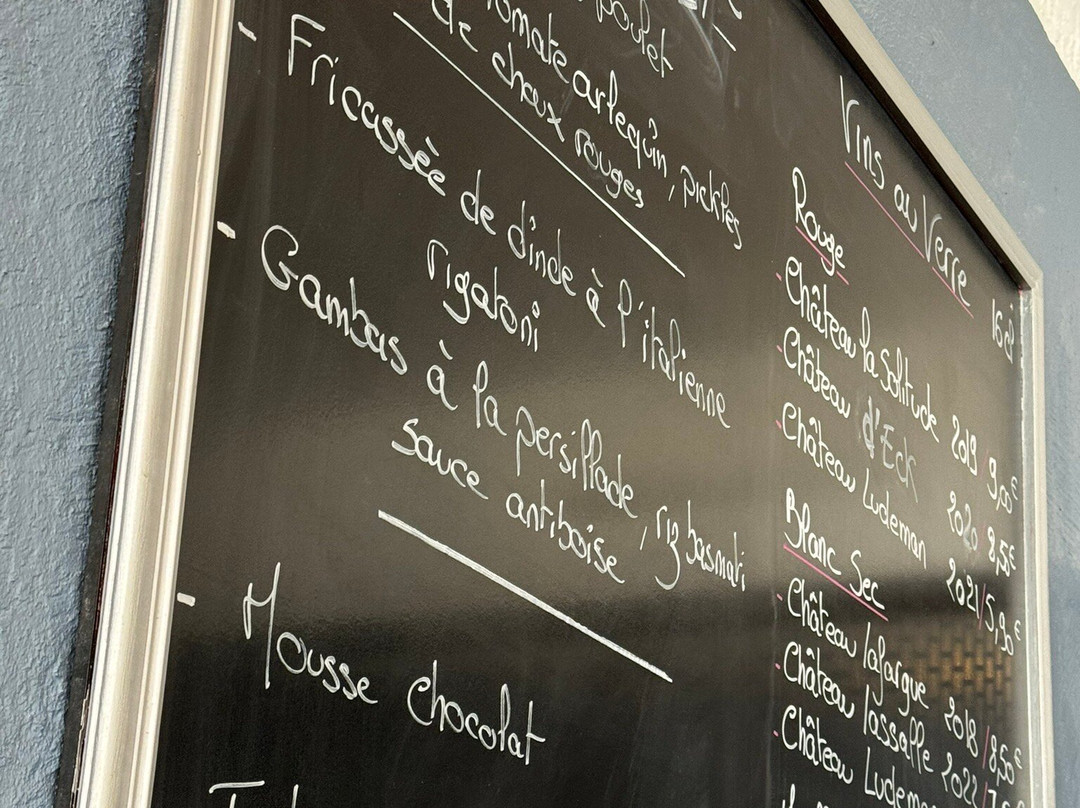 poulet
tomate arlequin, pickles
de choux rouges
- Fricassée de dinde à l'italienne
rigatoni
- Gambas à la persillade, riz basmati
sauce antiboise
- Mousse chocolat
Vins au Verre 16cl
Rouge
- Château la Solitude 2019 9,00€
- Château d'Eck 2020 8,50€
- Château Ludeman 2021/5,90€
Blanc Sec
- Château Lafargue 2018/8,50€
- Château Lassalle 2022/
- Château Ludeman